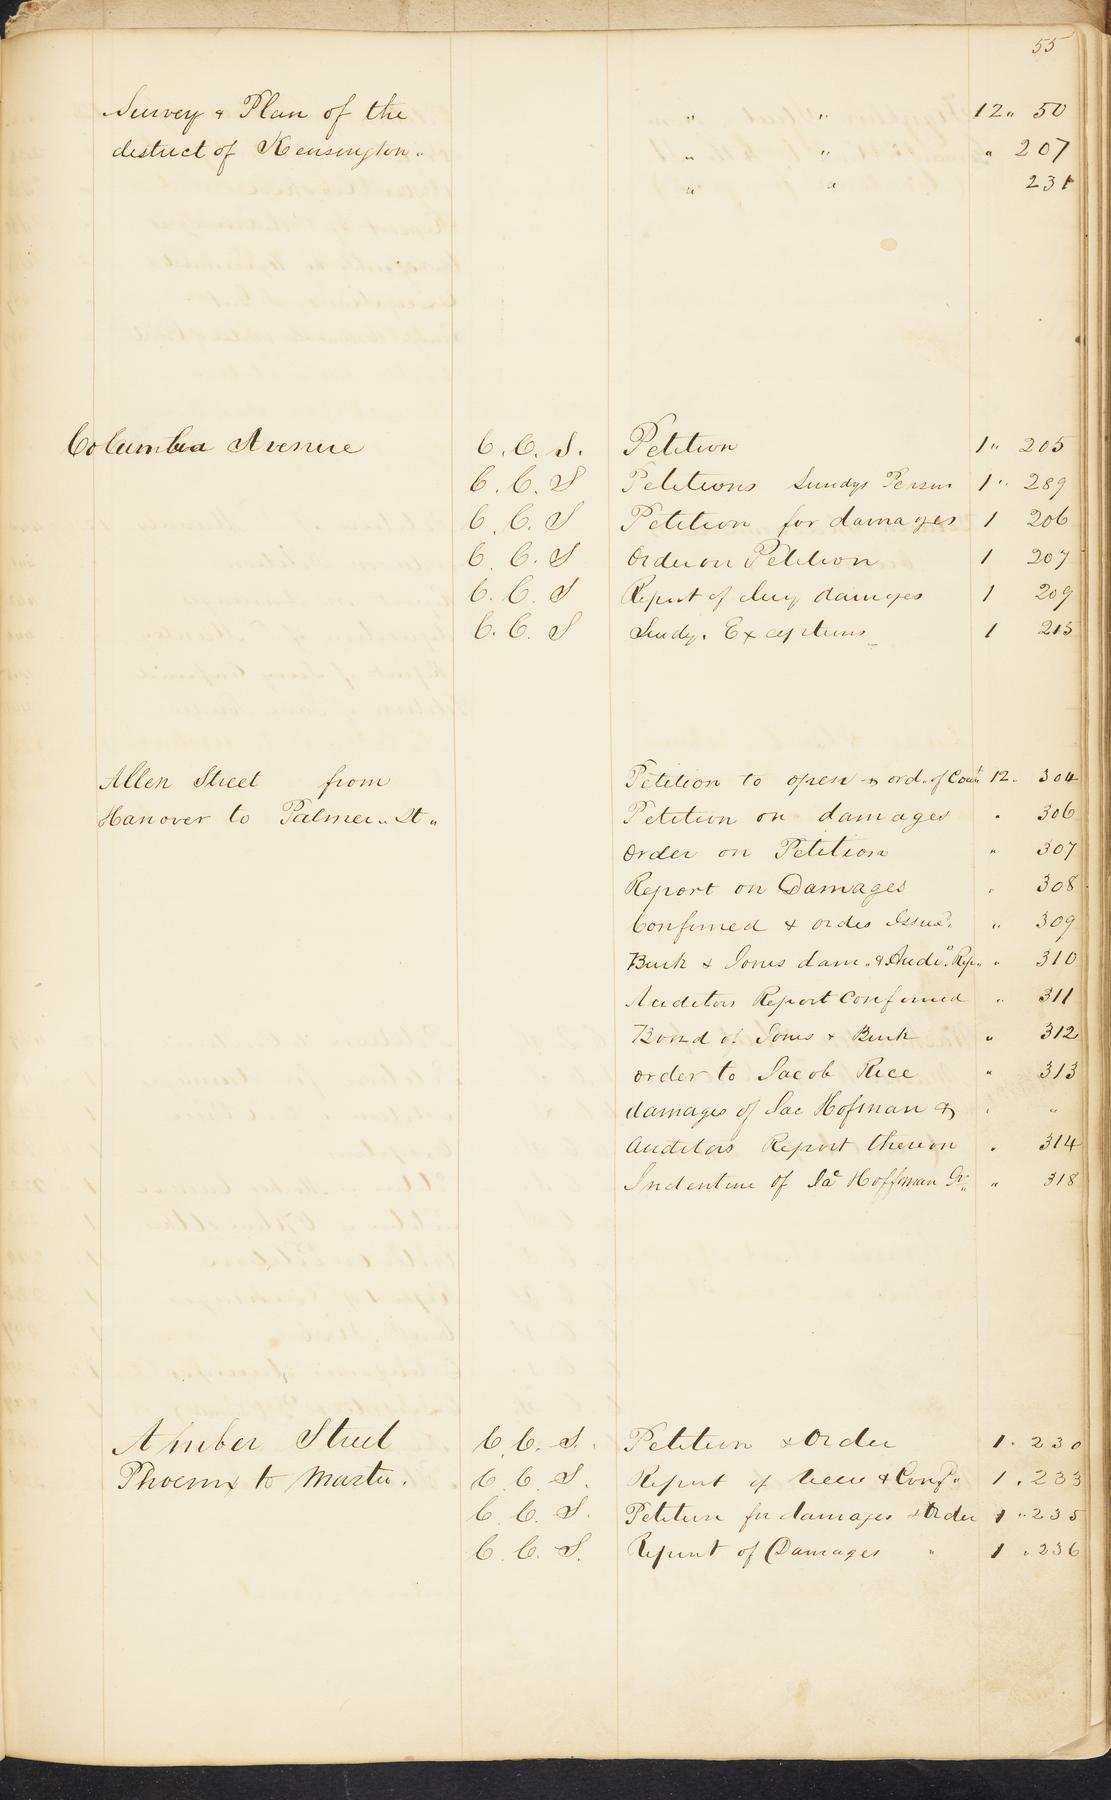 55
Survey & Plan of the " " 12 " 50
district of Kensington " " " " 207
" " 231
Columbia Avenue C. C. S. Petition 1 " 205
C. C. S Petitions Sundys Person 1 " 289
C. C. S Petition for damages 1 206
C. C. S Order on Petition 1 207
C. C. S Report of Jury damages 1 209
C. C. S Sundy. Exceptions 1 215
Allen Street from Petition to open & ord. of Court 12. 304
Hanover to Palmer " St " Petition on damages . 306
Order on Petition " 307
Report on Damages " 308
Confirmed & order Issued. " 309
Burk & Jones dam. & Audrs Rep. " 310
Auditors Report Confirmed " 311
Bond of Jones & Burk " 312
order to Jacob Rice " 313
damages of Jac Hofman & " "
Auditors Report thereon . 314
Indenture of Jac Hoffman Gr: " 318
Amber Street C. C. S. Petition & Order 1. 230
Phoenix to Master. C. C. S. Report of & Conf. 1. 233
C. C. S. Petition for damages & Order 1 " 235
C. C. S. Report of Damages " 1 . 236